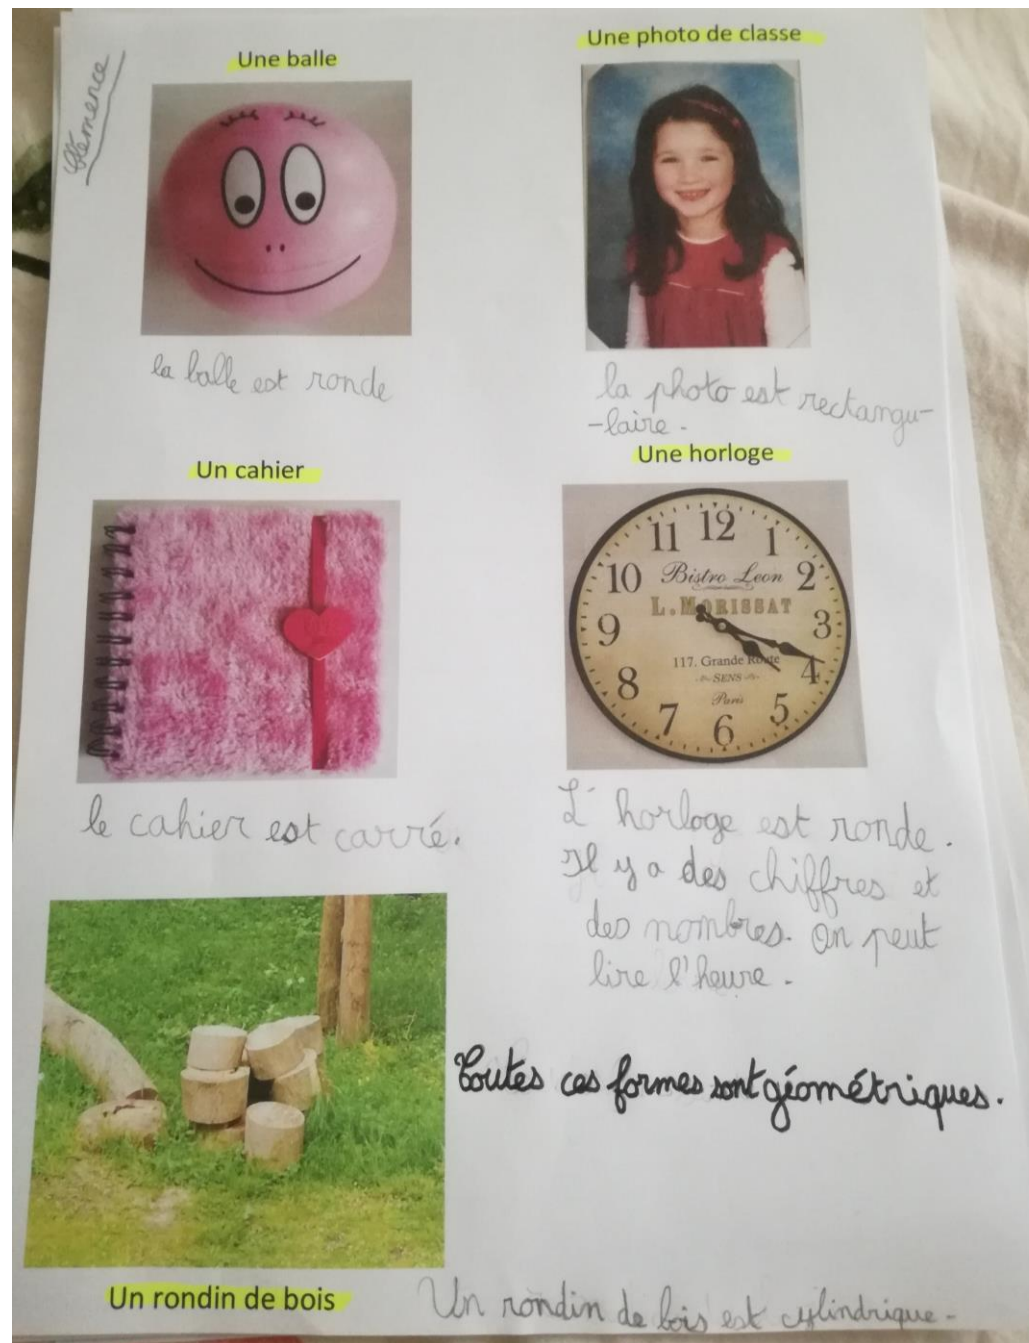 Clémence
Une balle
la balle est ronde
Une photo de classe
la photo est rectangu-
-laire.
Un cahier
le cahier est carré.
Une horloge
11 12 1
10 Bistro Leon 2
L. MORISSAT
9 3
117. Grande Route
8 SENS 4
Paris
7 6 5
L'horloge est ronde.
Il y a des chiffres et
des nombres. On peut
lire l'heure.
Toutes ces formes sont géométriques.
Un rondin de bois
Un rondin de bois est cylindrique.